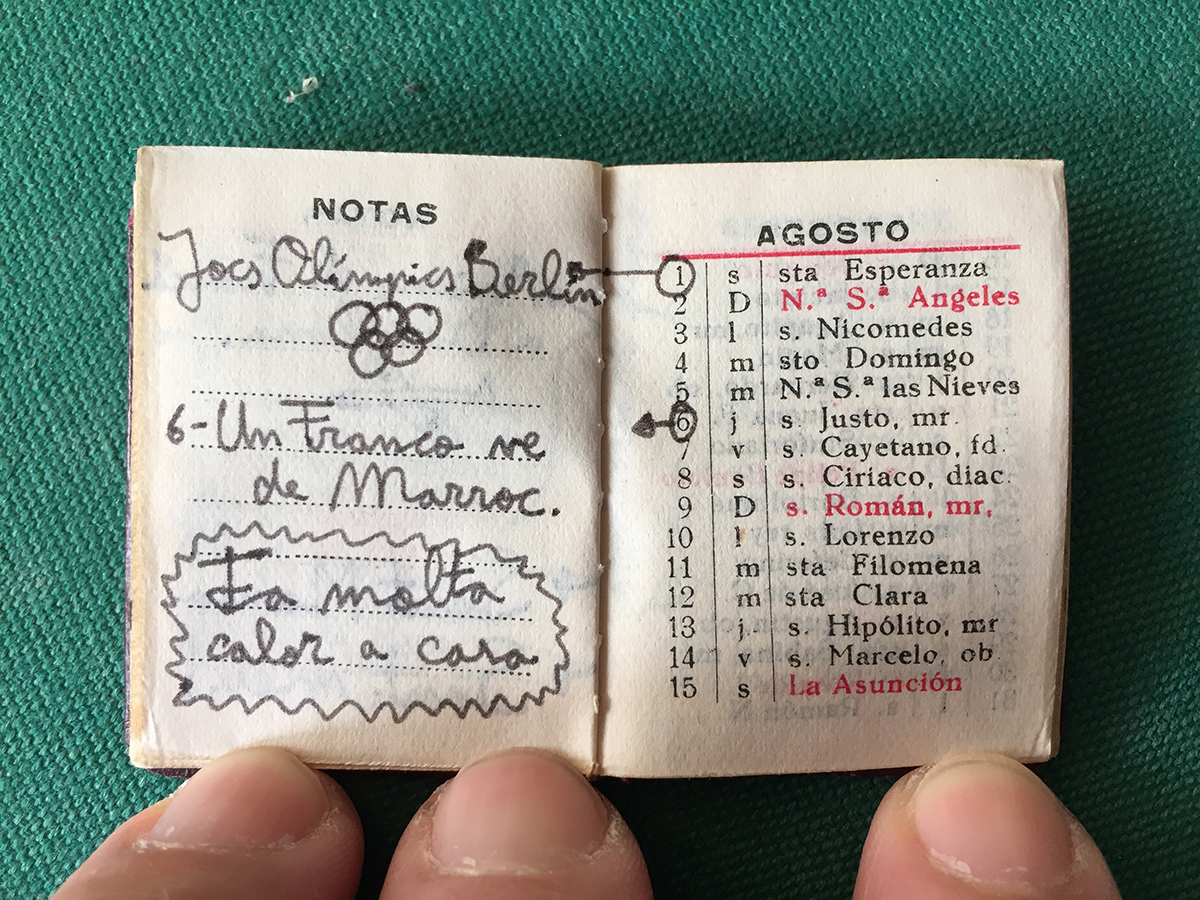 NOTAS
Jocs Olímpics Berlín
6-Un Franco ve
de Marroc.
Fa molta
calor a casa
AGOSTO
1 s sta Esperanza
2 D N.ª S.ª Angeles
3 l s. Nicomedes
4 m sto Domingo
5 m N.ª S.ª las Nieves
6 j s. Justo, mr.
7 v s. Cayetano, fd.
8 s s. Ciriaco, diac.
9 D s. Román, mr,
10 l s. Lorenzo
11 m sta Filomena
12 m sta Clara
13 j. s. Hipólito, mr
14 v s. Marcelo, ob
15 s La Asunción